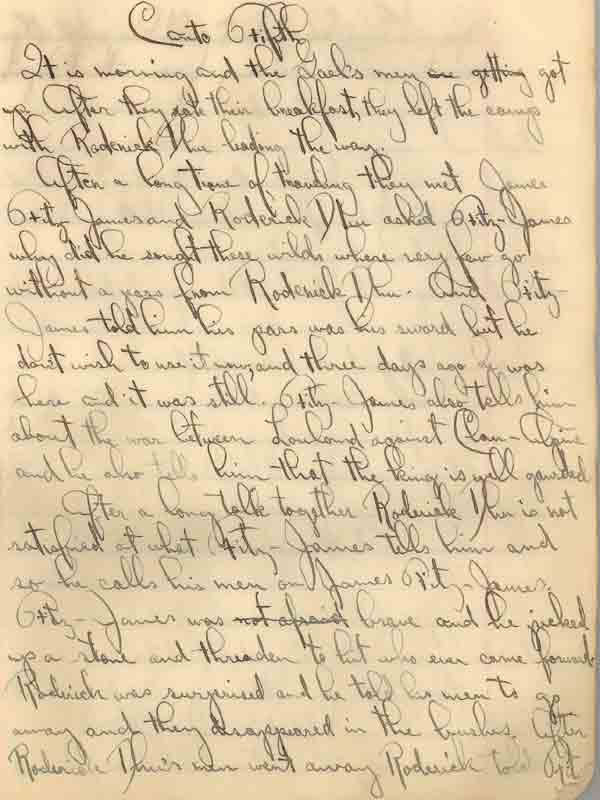 Canto Fifth
It is morning and the Gael's men are getting got
up. After they ate their breakfast, they left the camp
with Roderick Dhu leading the way.
After a long time of traveling they met James
Fitz-James and Roderick Dhu asked Fitz-James
why did he sought these wilds where very few go
without a pass from Roderick Dhu. And Fitz-
James told him his pass was his sword but he
don't wish to use it now, and three days ago he was
here and it was still. Fitz-James also tells him
about the war between Lowland against Clan-Alpine
and he also tells him that the king is well gaurded
After a long talk together Roderick Dhu is not
satisfied at what Fitz-James tells him and
so he calls his men on James Fitz-James.
Fitz-James was not afraid brave and he picked
up a stone and threaden to hit who ever came forward
Roderick was surgerised and he told his men to go
away and they disappeared in the bushes. After
Roderick Dhu's men went away Roderick told Fit